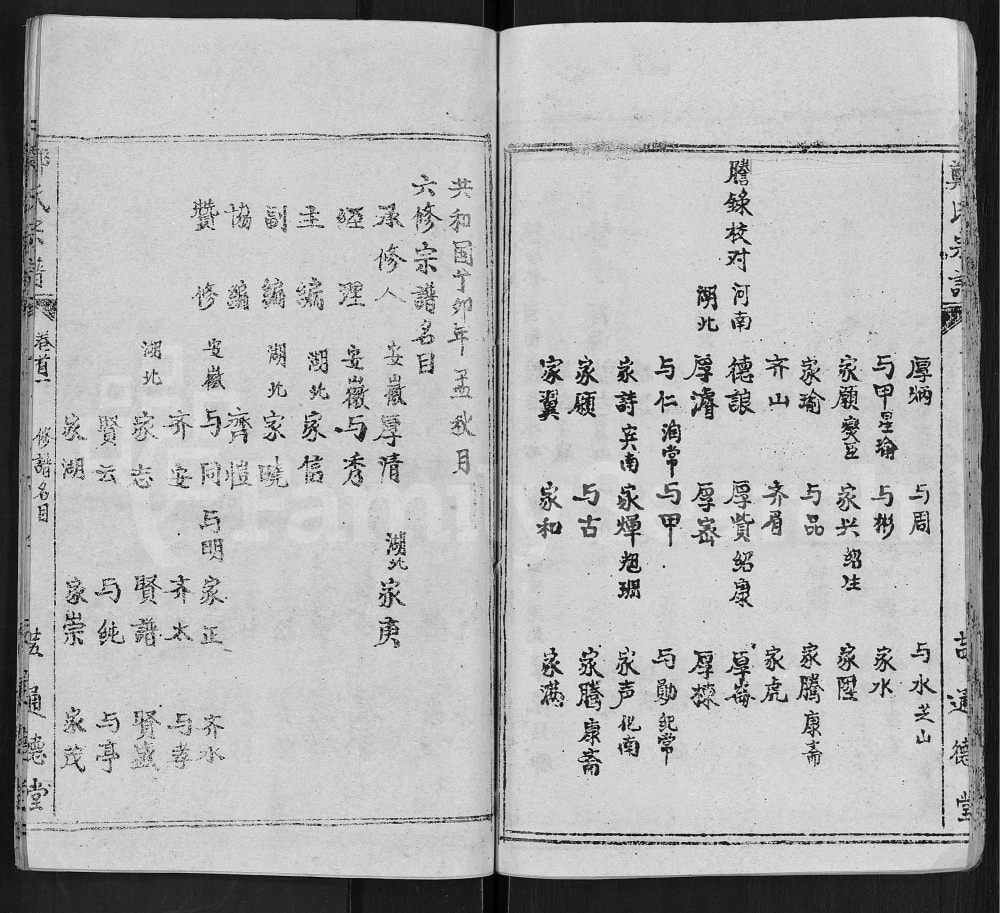 鄭氏宗譜
吉 通德堂
厚炳 与周 与水芝山
与甲星瑜 与彬 家水
家願燮臣 家兴绍生 家陞
家瑜 与品 家腾康斋
齐山 齐眉 家虎
謄錄校对 河南 德詪 厚贇绍康 厚崙
湖北 厚濬 厚嵩 厚楝
与仁润常 与甲 与勋纪常
家詩兵南 家煇 家声化南
家願 与古 家腾康斋
家翼 家和 家满
共和国丁卯年孟秋月
六修宗譜名目
承修人 安徽 厚清 湖北 家庚
经理 安徽 与秀
主编 湖北 家信
副编 湖北 家晓
協编 齊愷
贊修 安徽 与同 与明 家正 齐水
齐安 齐太 与孝
湖北 家志 賢譜 賢盛
賢云 与純 与亭
家湖 家崇 家茂
氏宗譜
卷首 修譜名目
通德堂